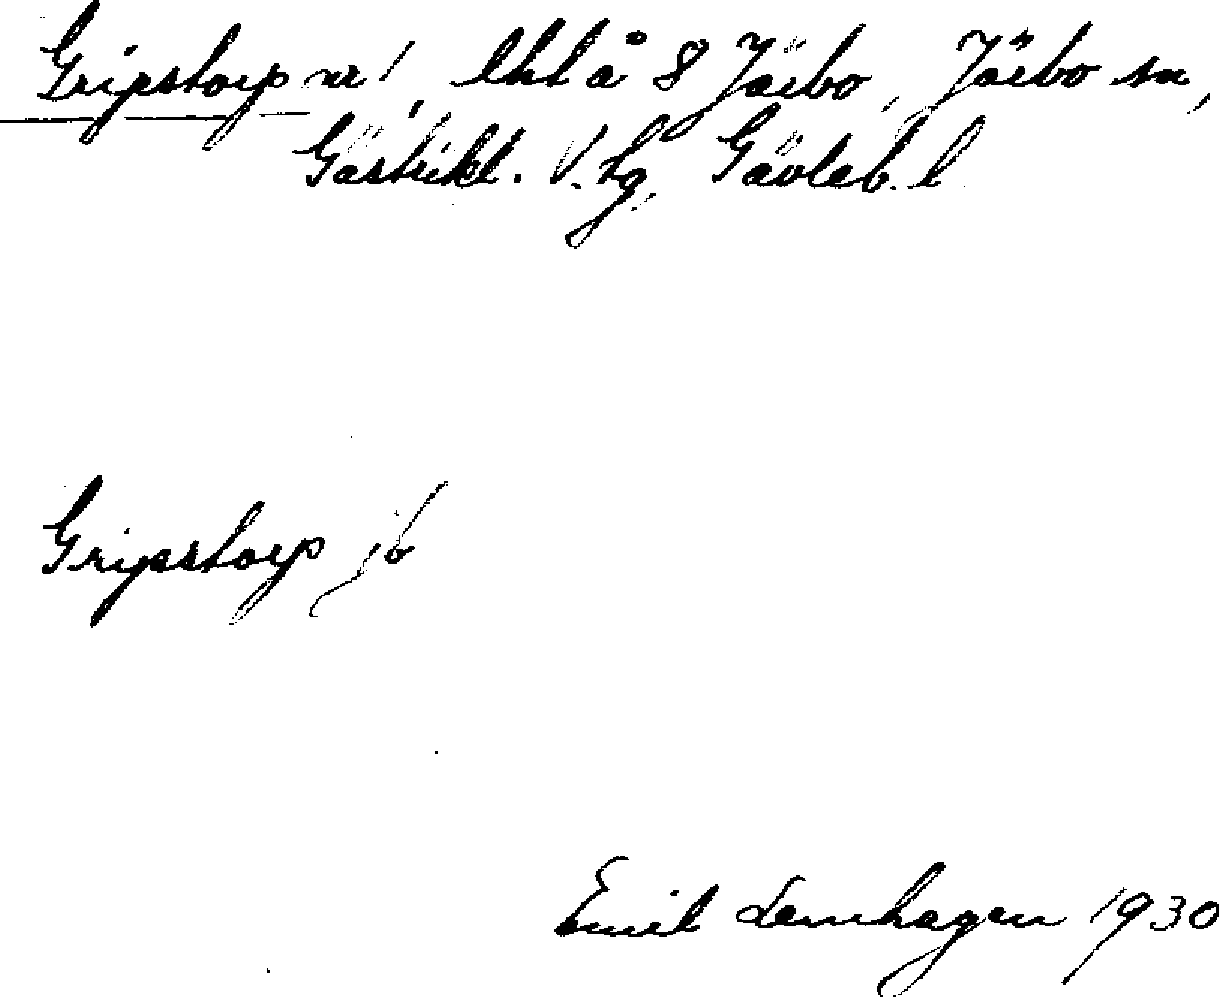 Gripstorp nr 1, lht å 8 Järbo, Järbo sn,
Gästrikl. V. tg, Gävleb. l
Gripstorp jb
Emil Lennhagen 1930